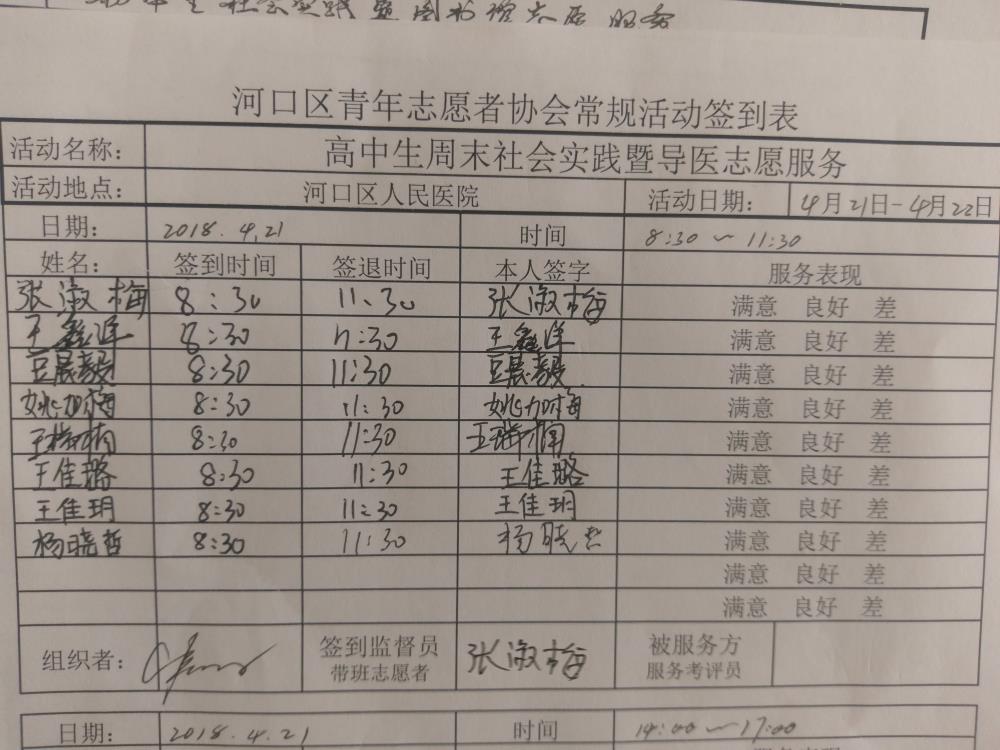 服务
河口区青年志愿者协会常规活动签到表
活动名称： 高中生周末社会实践暨导医志愿服务
活动地点： 河口区人民医院 活动日期： 4月21日-4月22日
日期： 2018.4.21 时间 8:30 ~ 11:30
姓名： 签到时间 签退时间 本人签字 服务表现
张淑梅 8:30 11:30 张淑梅 满意 良好 差
王鑫洋 8:30 11:30 王鑫洋 满意 良好 差
豆晨毅 8:30 11:30 豆晨毅 满意 良好 差
姚加梅 8:30 11:30 姚加梅 满意 良好 差
8:30 11:30 满意 良好 差
王佳璐 8:30 11:30 王佳璐 满意 良好 差
王佳玥 8:30 11:30 王佳玥 满意 良好 差
杨晓哲 8:30 11:30 杨晓哲 满意 良好 差
满意 良好 差
满意 良好 差
组织者： 签到监督员 张淑梅 被服务方
带班志愿者 服务考评员
日期： 2018.4.21 时间 14:00~17:00